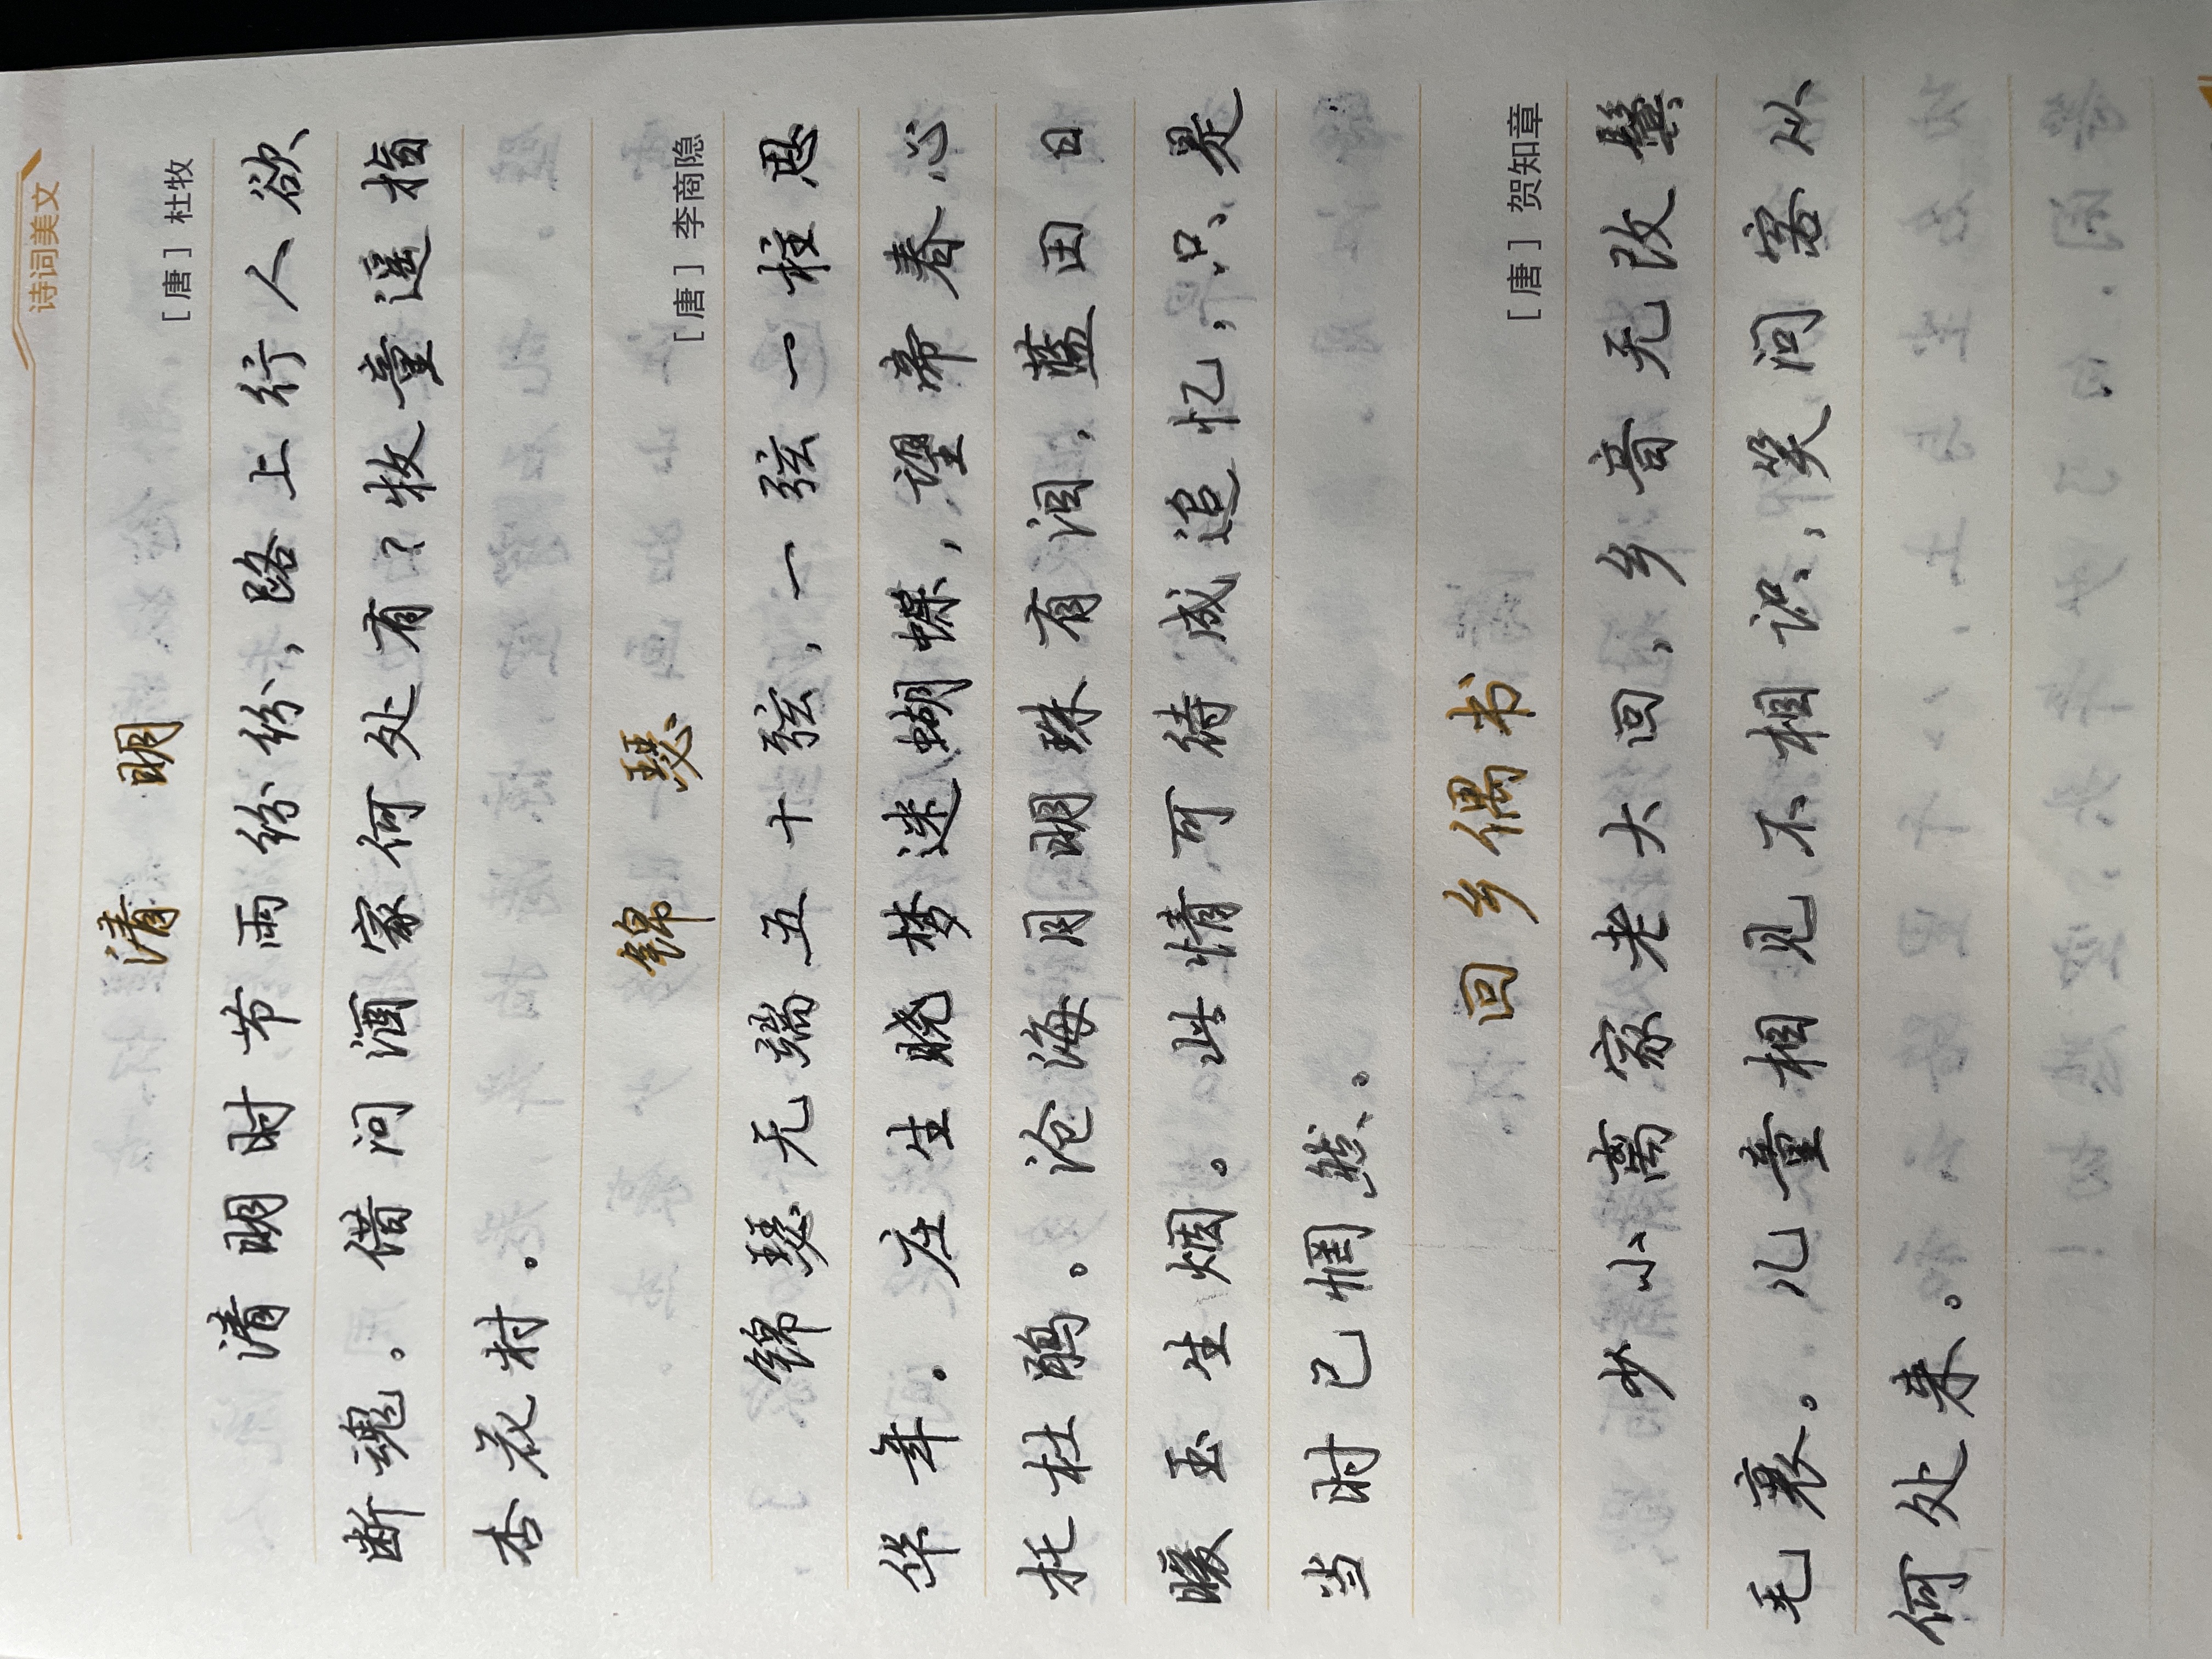 诗词美文
清 明
［唐］杜牧
清明时节雨纷纷,路上行人欲
断魂。借问酒家何处有?牧童遥指
杏花村。
锦 瑟
［唐］李商隐
锦瑟无端五十弦,一弦一柱思
华年。庄生晓梦迷蝴蝶,望帝春心
托杜鹃。沧海月明珠有泪,蓝田日
暖玉生烟。此情可待成追忆,只是
当时已惘然。
回乡偶书
［唐］贺知章
少小离家老大回,乡音无改鬓
毛衰。儿童相见不相识,笑问客从
何处来。